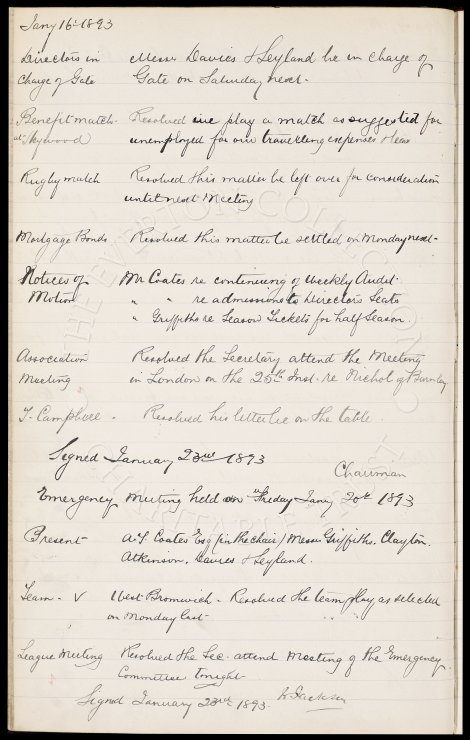 Jany 16th 1893
Directors in Messrs Davies & Leyland be in charge of
Charge of Gate Gate on Saturday next.
Benefit match Resolved we play a match as suggested for
at Heywood unemployed for our travelling expenses & teas
Rugby match Resolved this matter be left over for consideration
until next Meeting
Mortgage Bonds Resolved this matter be settled on Monday next.
Notices of Mr Coates re continuing of Weekly Audit.
Motion " " re admissions to Directors Seats
" Griffiths re Season Tickets for half Season.
Association Resolved the Secretary attend the Meeting
Meeting in London on the 25th Inst. re Nichol of Burnley
Resolved his letter lie on the table.
Signed January 23rd 1893
Chairman
Emergency Meeting held on Friday Jany 20th 1893
Present A. T. Coates Esq (in the chair) Messrs Griffiths, Clayton,
Atkinson, Davies & Leyland.
Team - V West Bromwich - Resolved the team play as selected
on Monday last
League Meeting Resolved the Sec. attend Meeting of the Emergency
Committee tonight
Signed January 23rd 1893. W Jackson
THE EVERTON COLLECTION
CHARITABLE TRUST